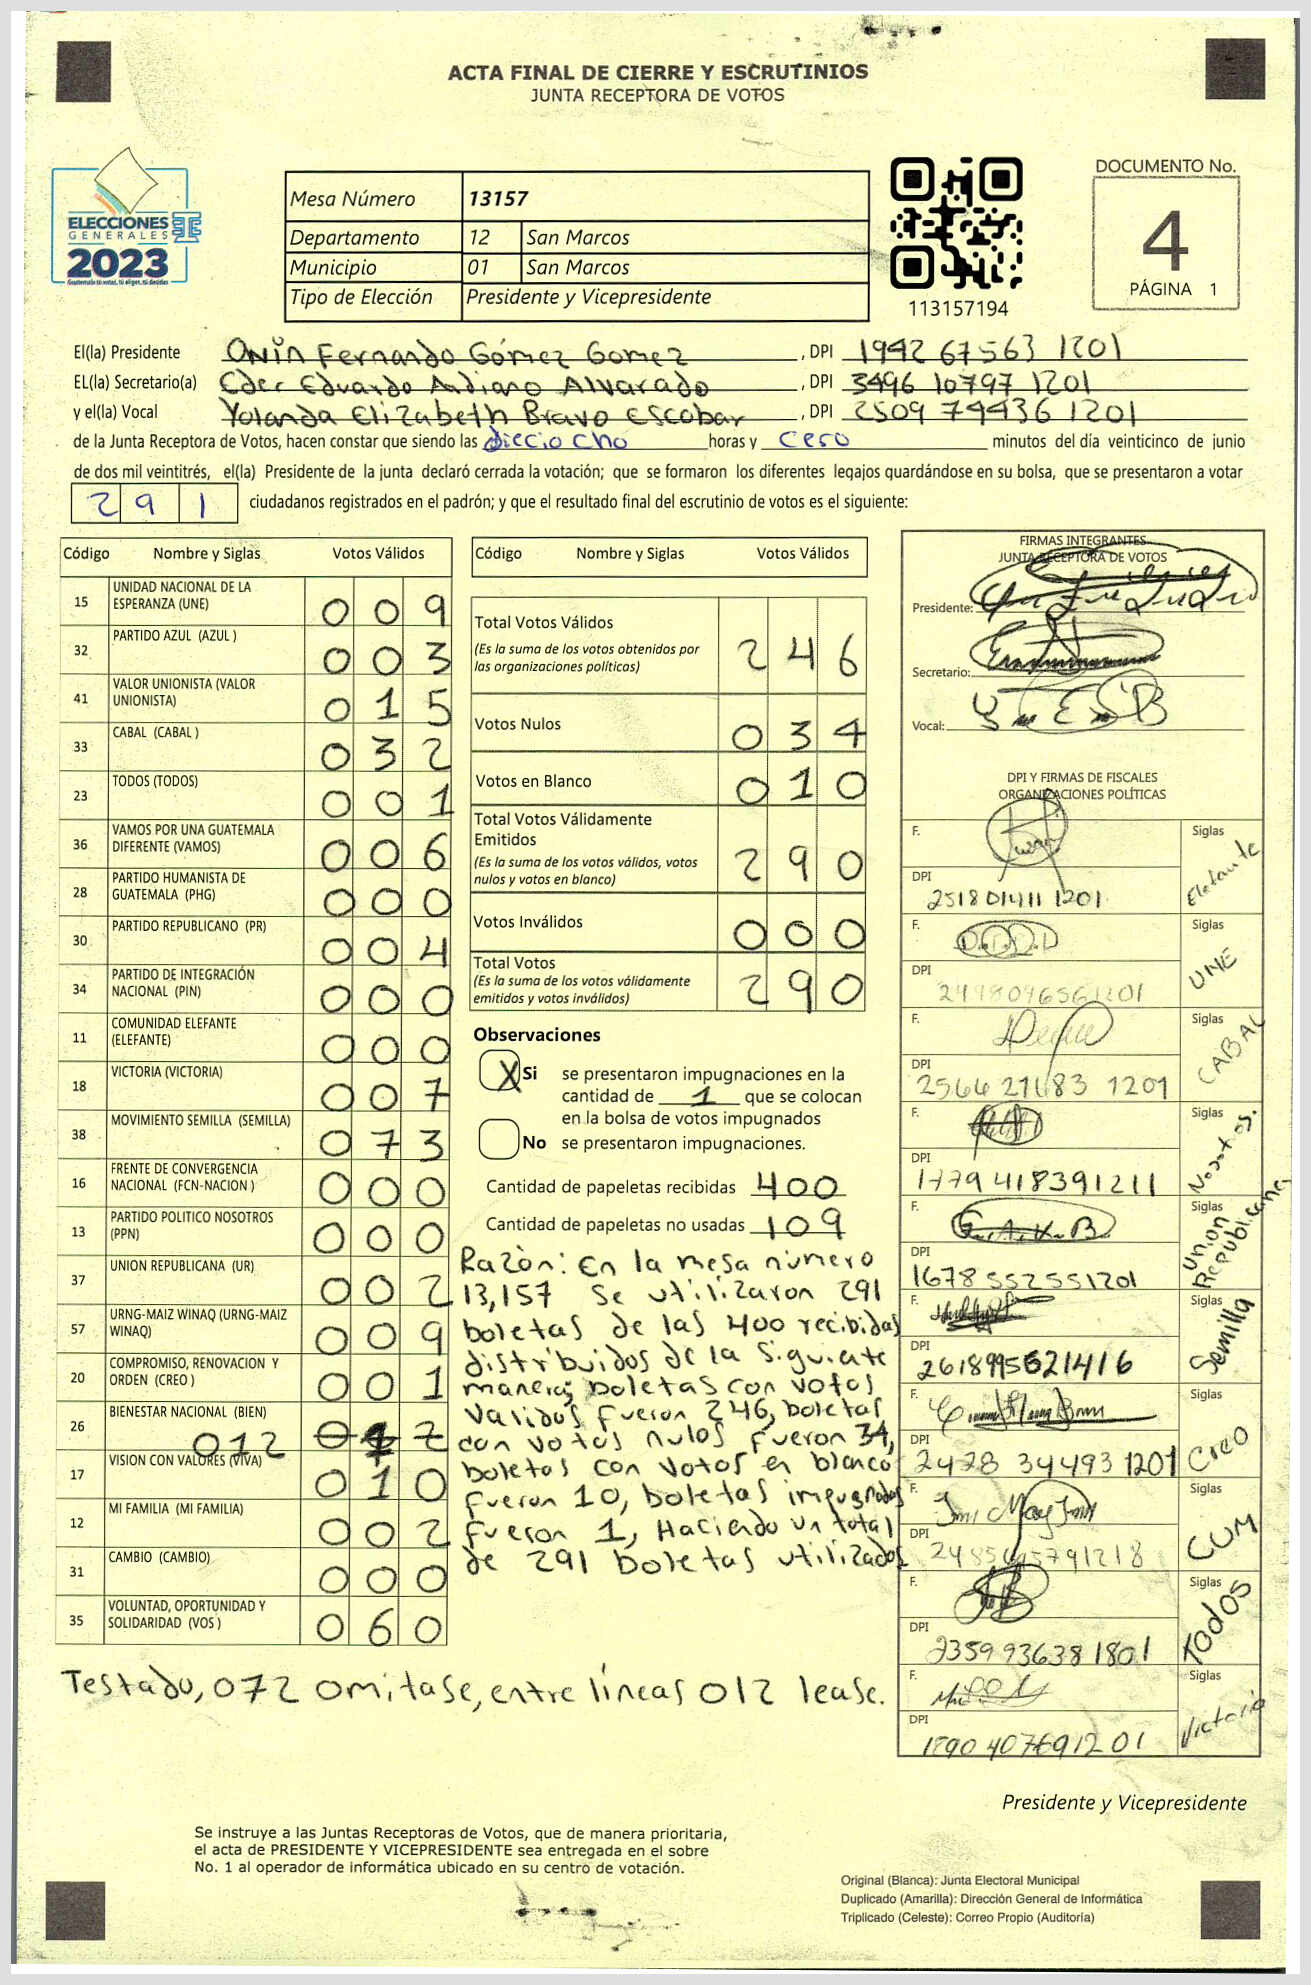 ACTA FINAL DE CIERRE Y ESCRUTINIOS
JUNTA RECEPTORA DE VOTOS
ELECCIONES
GENERALES
2023
Guatemala tú votas, tú eliges, tú decides
Mesa Número 13157
Departamento 12 San Marcos
Municipio 01 San Marcos
Tipo de Elección Presidente y Vicepresidente
113157194
DOCUMENTO No.
4
PÁGINA 1
El(la) Presidente Onin Fernando Gómez Gomez , DPI 1942 67563 1201
EL(la) Secretario(a) Eder Eduardo Andiano Alvarado , DPI 3496 10797 1201
y el(la) Vocal Yolanda Elizabeth Bravo Escobar , DPI 2509 74436 1201
de la Junta Receptora de Votos, hacen constar que siendo las dieciocho horas y cero minutos del día veinticinco de junio
de dos mil veintitrés, el(la) Presidente de la junta declaró cerrada la votación; que se formaron los diferentes legajos quardándose en su bolsa, que se presentaron a votar
291 ciudadanos registrados en el padrón; y que el resultado final del escrutinio de votos es el siguiente:
Código Nombre y Siglas Votos Válidos
15 UNIDAD NACIONAL DE LA ESPERANZA (UNE) 009
32 PARTIDO AZUL (AZUL ) 003
41 VALOR UNIONISTA (VALOR UNIONISTA) 015
33 CABAL (CABAL ) 032
23 TODOS (TODOS) 001
36 VAMOS POR UNA GUATEMALA DIFERENTE (VAMOS) 006
28 PARTIDO HUMANISTA DE GUATEMALA (PHG) 000
30 PARTIDO REPUBLICANO (PR) 004
34 PARTIDO DE INTEGRACIÓN NACIONAL (PIN) 000
11 COMUNIDAD ELEFANTE (ELEFANTE) 000
18 VICTORIA (VICTORIA) 007
38 MOVIMIENTO SEMILLA (SEMILLA) 073
16 FRENTE DE CONVERGENCIA NACIONAL (FCN-NACION ) 000
13 PARTIDO POLITICO NOSOTROS (PPN) 000
37 UNION REPUBLICANA (UR) 002
57 URNG-MAIZ WINAQ (URNG-MAIZ WINAQ) 009
20 COMPROMISO, RENOVACION Y ORDEN (CREO ) 001
26 BIENESTAR NACIONAL (BIEN) 012
17 VISION CON VALORES (VIVA) 010
12 MI FAMILIA (MI FAMILIA) 002
31 CAMBIO (CAMBIO) 000
35 VOLUNTAD, OPORTUNIDAD Y SOLIDARIDAD (VOS ) 060
Testado, 072 omitase, entre líneas 012 lease.
Código Nombre y Siglas Votos Válidos
Total Votos Válidos 246
(Es la suma de los votos obtenidos por
las organizaciones políticas)
Votos Nulos 034
Votos en Blanco 010
Total Votos Válidamente
Emitidos 290
(Es la suma de los votos válidos, votos
nulos y votos en blanco)
Votos Inválidos 000
Total Votos 290
(Es la suma de los votos válidamente
emitidos y votos inválidos)
Observaciones
X Si se presentaron impugnaciones en la
cantidad de 1 que se colocan
en la bolsa de votos impugnados
No se presentaron impugnaciones.
Cantidad de papeletas recibidas 400
Cantidad de papeletas no usadas 109
Razón: En la mesa número
13,157 Se utilizaron 291
boletas de las 400 recibidas
distribuidos de la siguiente
manera; boletas con votos
validos fueron 246, boletas
con votos nulos fueron 34,
boletas con votos en blanco
fueron 10, boletas impugnados
fueron 1, Haciendo un total
de 291 boletas utilizados
FIRMAS INTEGRANTES
JUNTA RECEPTORA DE VOTOS
Presidente:
Secretario:
Vocal:
DPI Y FIRMAS DE FISCALES
ORGANIZACIONES POLÍTICAS
F. Siglas Elefante
DPI
F. Siglas UNE
DPI
F. Siglas CABAL
DPI
F. Siglas Nosotros.
DPI 1779 418391211
F. Siglas Union Republicana
DPI 1678 552551201
F. Siglas Semilla
DPI 2618995621416
F. Siglas Creo
DPI 2478 34493 1201
F. Siglas CUM
DPI
F. Siglas todos
DPI 2359 93638 1801
F. Siglas Victoria
DPI
Presidente y Vicepresidente
Se instruye a las Juntas Receptoras de Votos, que de manera prioritaria,
el acta de PRESIDENTE Y VICEPRESIDENTE sea entregada en el sobre
No. 1 al operador de informática ubicado en su centro de votación.
Original (Blanca): Junta Electoral Municipal
Duplicado (Amarilla): Dirección General de Informática
Triplicado (Celeste): Correo Propio (Auditoría)